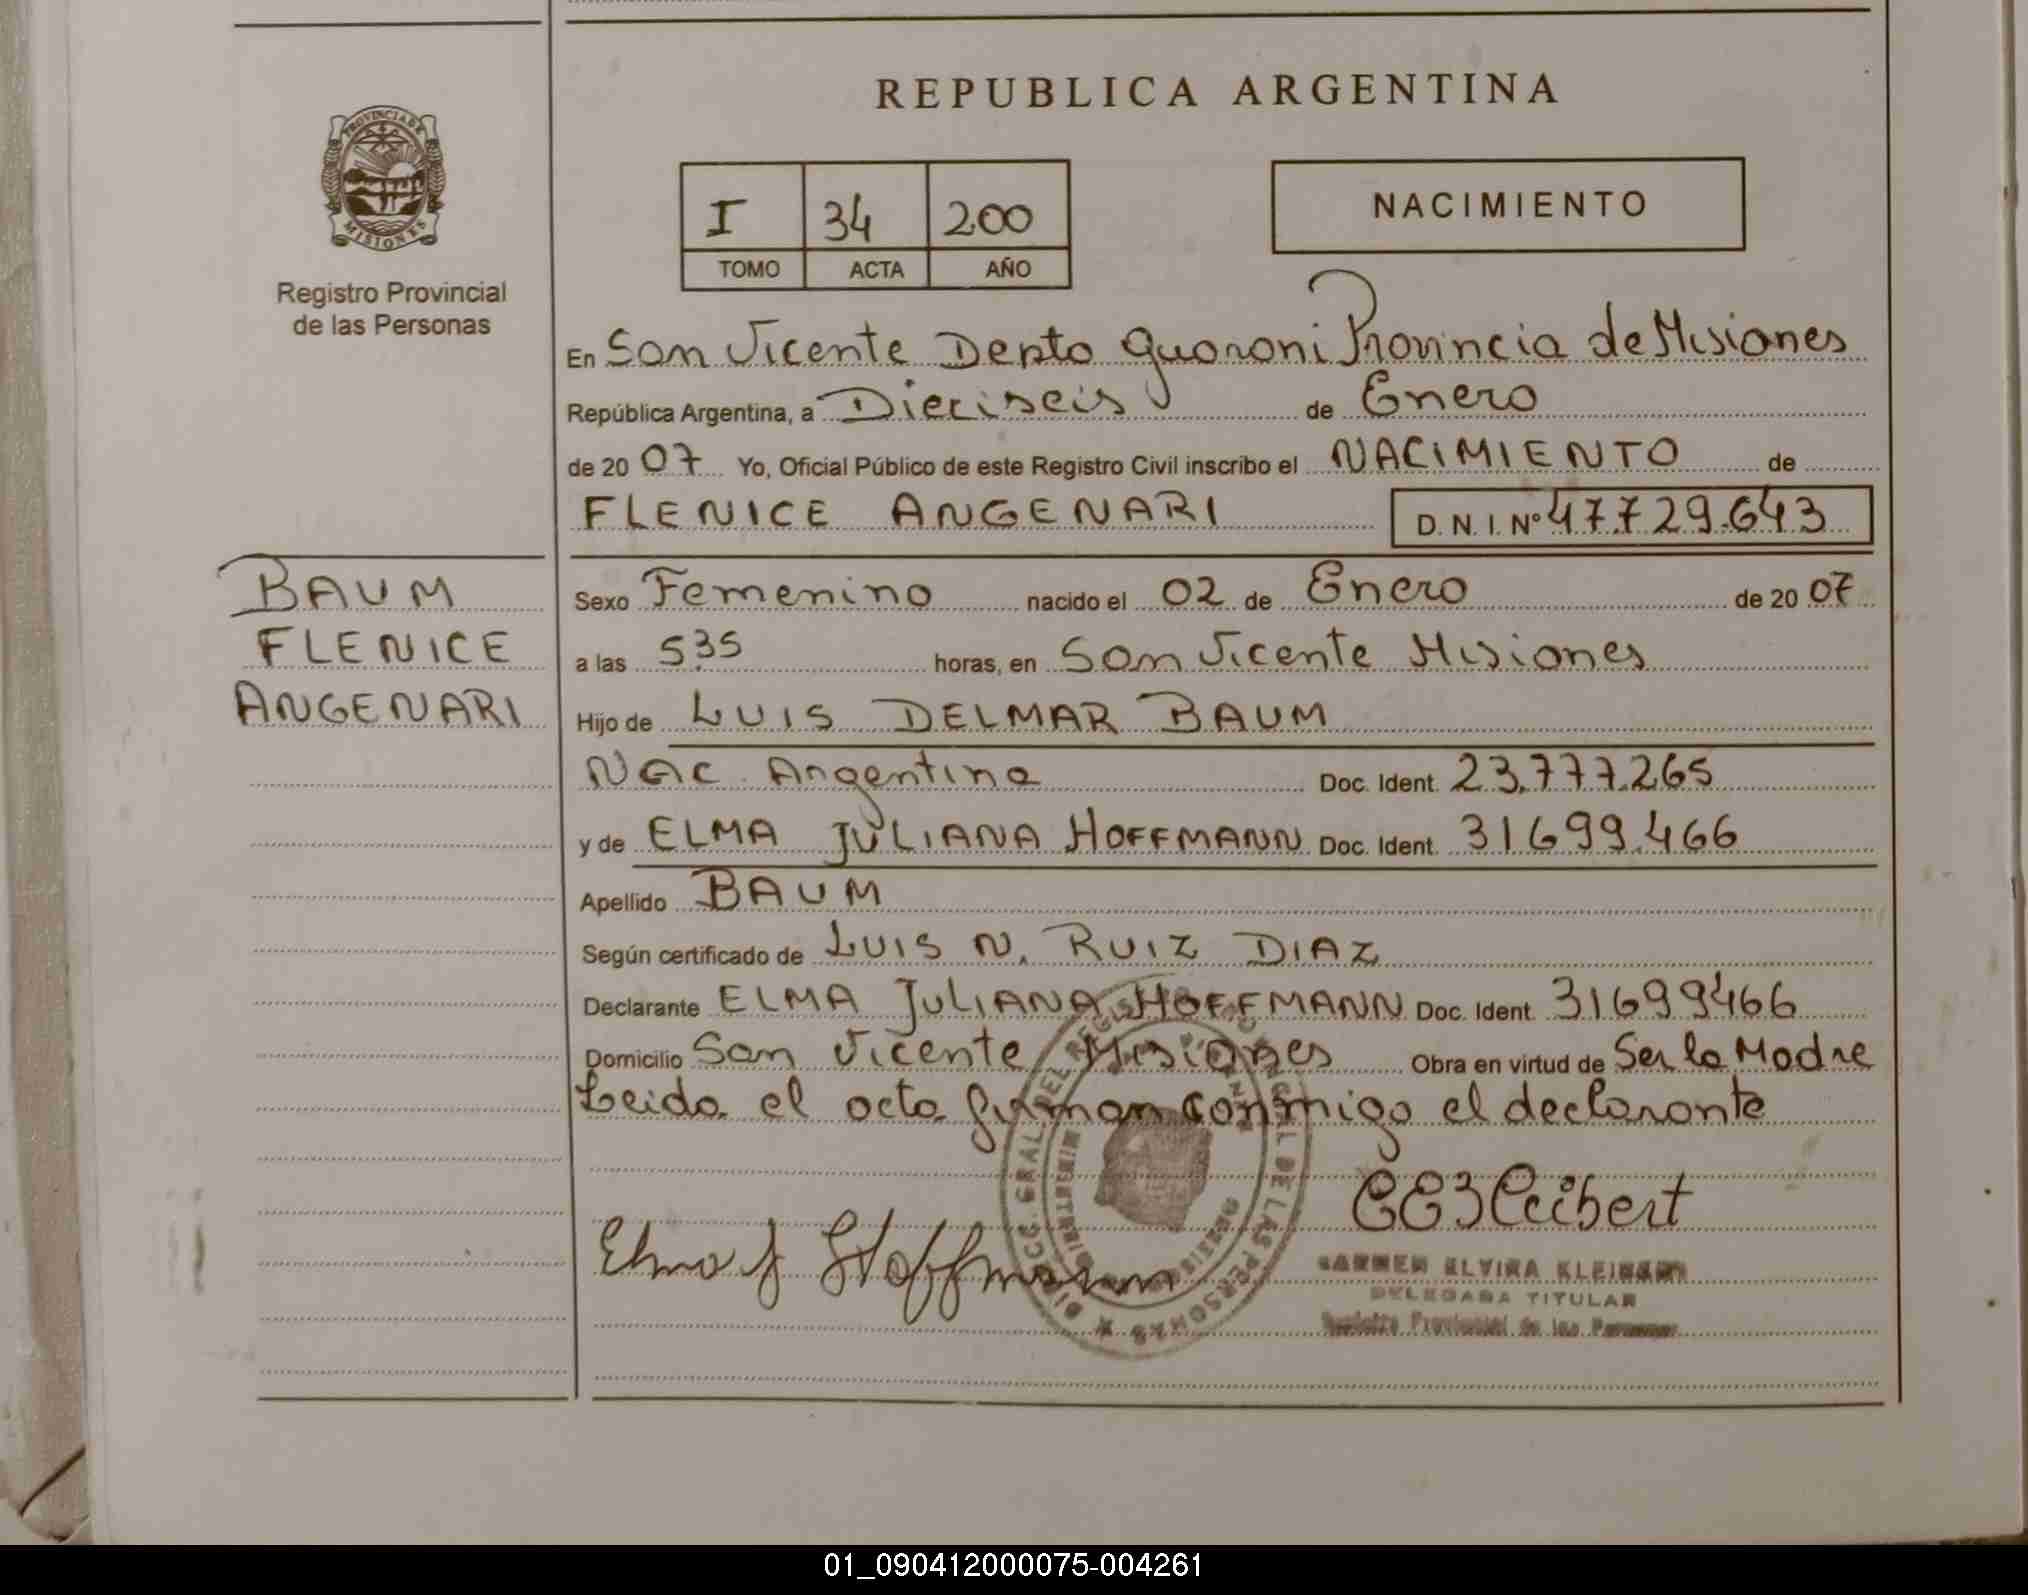 REPUBLICA ARGENTINA
PROVINCIA DE
MISIONES
Registro Provincial
de las Personas
I 34 200
TOMO ACTA AÑO
NACIMIENTO
En San Vicente Depto Guaraní Provincia de Misiones
República Argentina, a Dieciseis de Enero
de 20 07 Yo, Oficial Público de este Registro Civil inscribo el NACIMIENTO de
FLENICE ANGENARI D. N. I. Nº 47.729.643
BAUM
FLENICE
ANGENARI
Sexo Femenino nacido el 02 de Enero de 20 07
a las 535 horas, en San Vicente Misiones
Hijo de LUIS DELMAR BAUM
Nac. Argentina Doc. Ident. 23.777.265
y de ELMA JULIANA HOFFMANN Doc. Ident. 31699.466
Apellido BAUM
Según certificado de LUIS N. RUIZ DIAZ
Declarante ELMA JULIANA HOFFMANN Doc. Ident. 31699466
Domicilio San Vicente Misiones Obra en virtud de Ser la Madre
Leida el acta firman conmigo el declarante
Elma J Hoffmann
CARMEN ELVIRA
DELEGADA TITULAR
Registro Provincial de las Personas
01_090412000075-004261